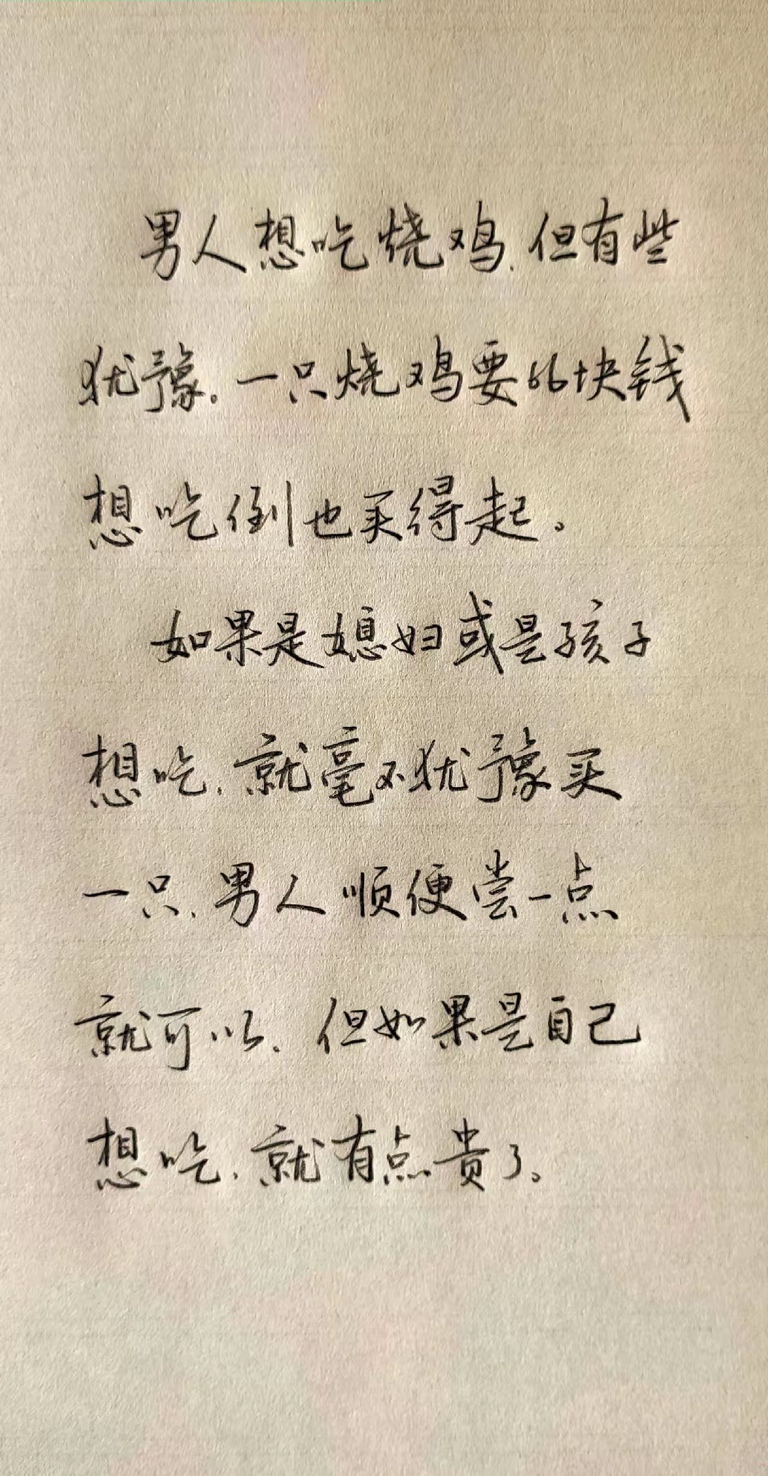 男人想吃烧鸡,但有些
犹豫。一只烧鸡要66块钱
想吃倒也买得起。
如果是媳妇或是孩子
想吃,就毫不犹豫买
一只,男人顺便尝一点
就可以,但如果是自己
想吃,就有点贵了。